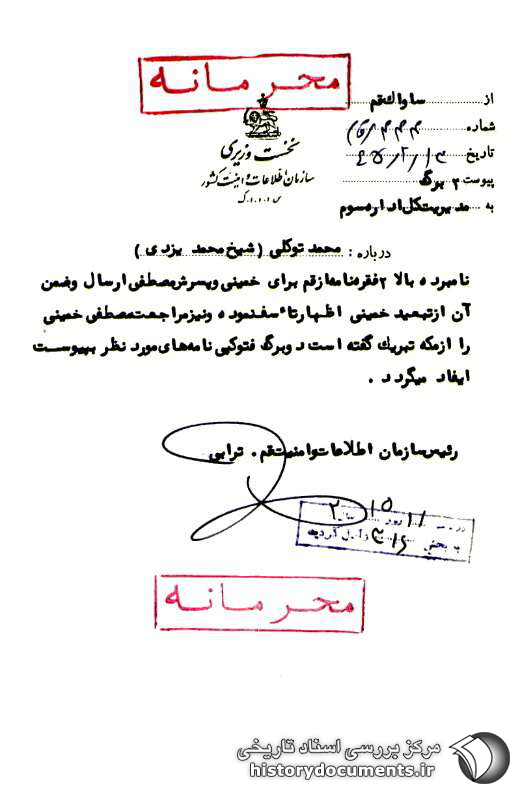 محرمانه
از ساواك قم
شماره
تاریخ
پیوست ۲ برگ
به مدیریت کل اداره سوم
نخست وزیری
سازمان اطلاعات و امنیت کشور
س.ا.و.ا.ک
درباره : محمد توکلی ( شیخ محمد یزدی )
نامبرده بالا ۲ فقره نامه از قم برای خمینی و پسرش مصطفی ارسال و ضمن
آن از تبعید خمینی اظهار تاءسف نموده و نیز مراجعت مصطفی خمینی
را از مکه تبریك گفته است دو برگ فتوکپی نامه‌های مورد نظر به پیوست
ایفاد میگردد .
رئیس سازمان اطلاعات و امنیت قم . ترابی
به بخش ۳۱۶ واصل گردید
محرمانه
مرکز بررسی اسناد تاریخی
historydocuments.ir